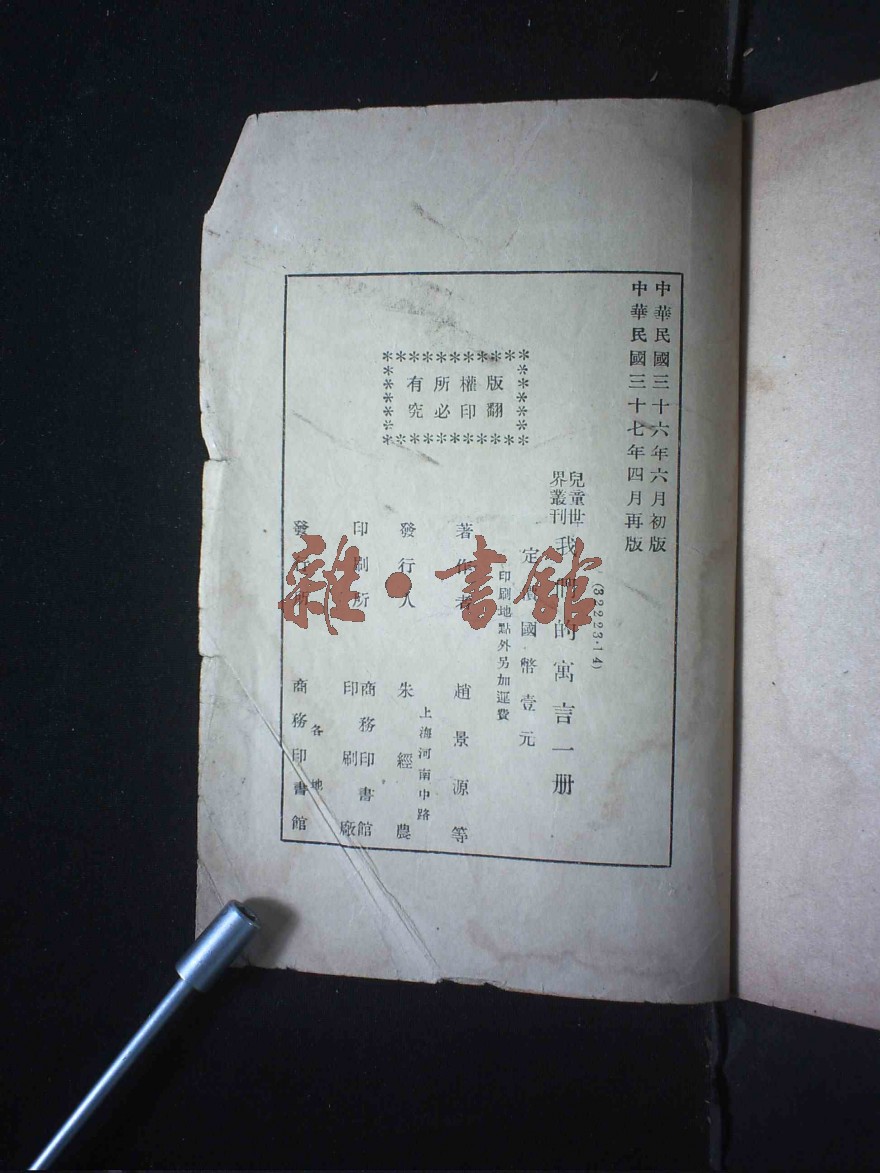 中華民國三十六年六月初版
中華民國三十七年四月再版
(32223·14)
兒童世界叢刊
我們的寓言一册
定價國幣壹元
印刷地點外另加運費
版權所有
翻印必究
著作者 趙景源等
上海河南中路
發行人 朱經農
印刷所 商務印書館印刷廠
各地
發行所 商務印書館
雜·書館